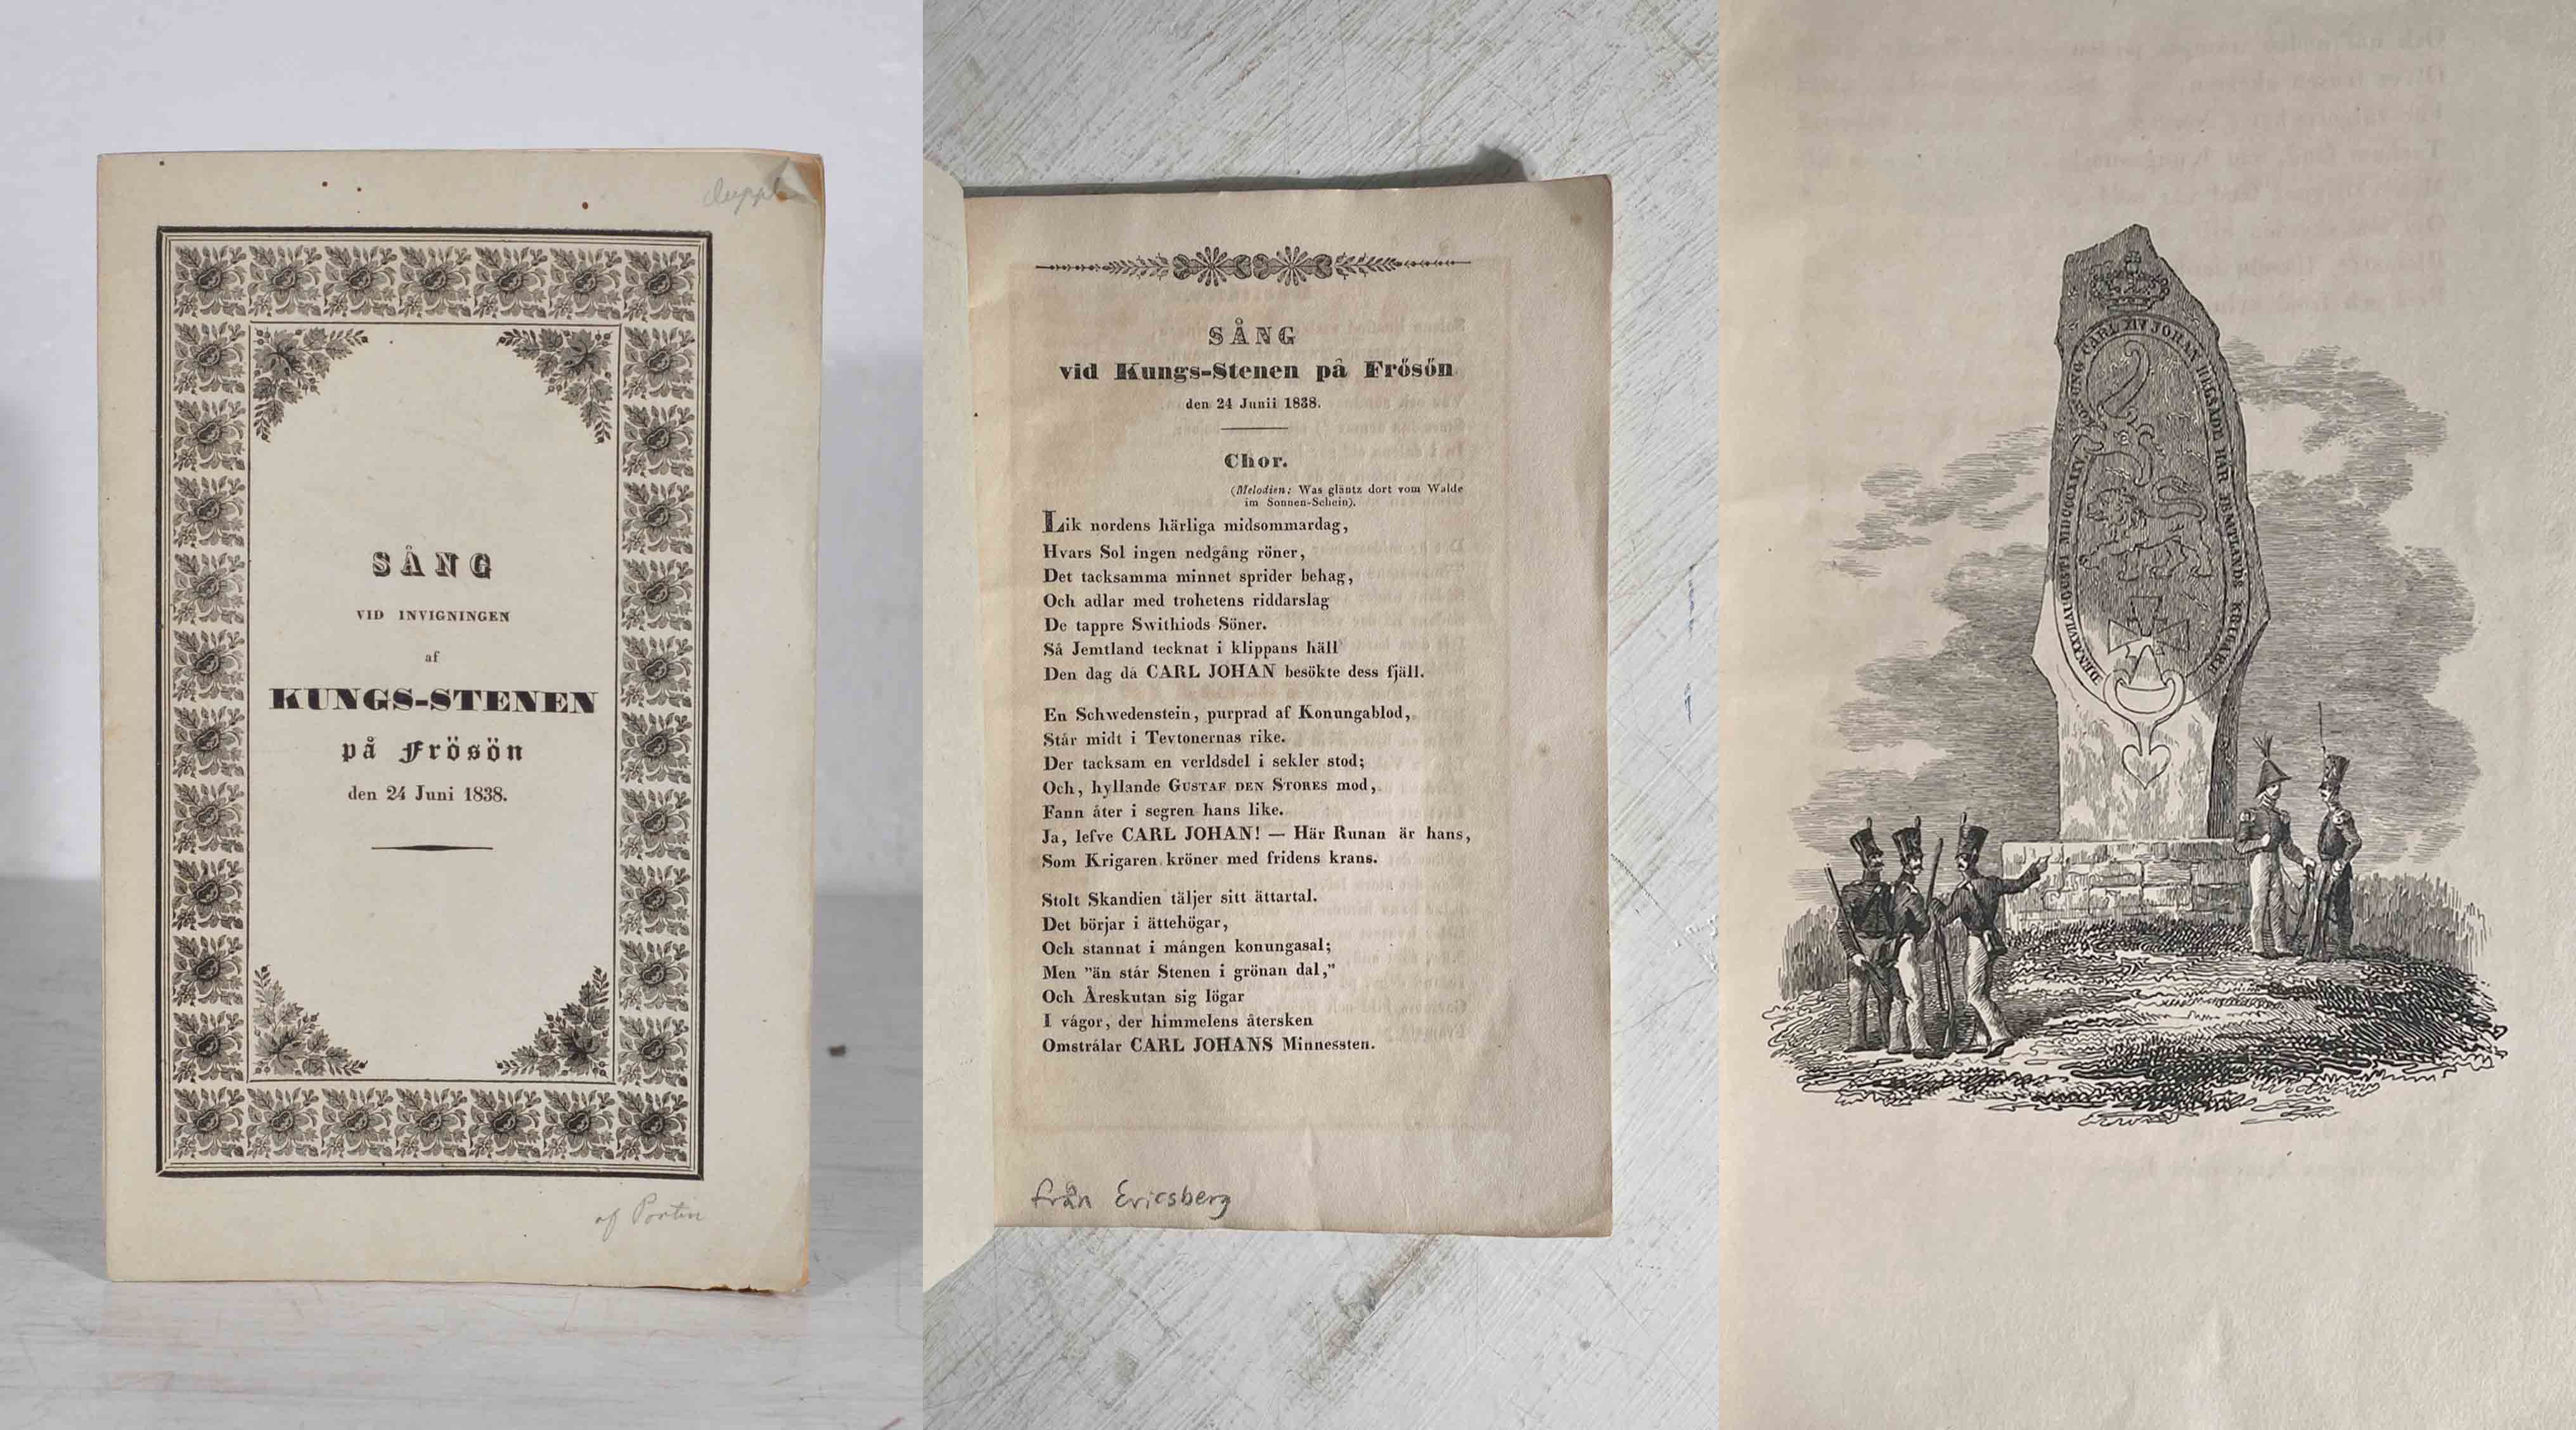 Duppl
SÅNG
VID INVIGNINGEN
af
KUNGS-STENEN
på Frösön
den 24 Juni 1838.
af Portin
SÅNG
vid Kungs-Stenen på Frősőn
den 24 Junii 1838.
Chor.
(Melodien: Was gläntz dort vom Walde
im Sonnen-Schein).
Lik nordens härliga midsommardag,
Hvars Sol ingen nedgång röner,
Det tacksamma minnet sprider behag,
Och adlar med trohetens riddarslag
De tappre Swithiods Söner.
Så Jemtland tecknat i klippans häll
Den dag då CARL JOHAN besökte dess fjäll.
En Schwedenstein, purprad af Konungablod,
Står midt i Tevtonernas rike.
Der tacksam en verldsdel i sekler stod;
Och, hyllande GUSTAF DEN STORES mod,
Fann åter i segren hans like.
Ja, lefve CARL JOHAN! — Här Runan är hans,
Som Krigaren kröner med fridens krans.
Stolt Skandien täljer sitt ättartal.
Det börjar i ättehögar,
Och stannat i mången konungasal;
Men "än står Stenen i grönan dal,"
Och Åreskutan sig lögar
I vågor, der himmelens återsken
Omstrålar CARL JOHANS Minnessten.
från Ericsberg
KONUNG CARL XIV JOHAN HELSADE HÄR JEMTLANDS KRIGARE
DEN XVII AUGUSTI MDCCCXXXV